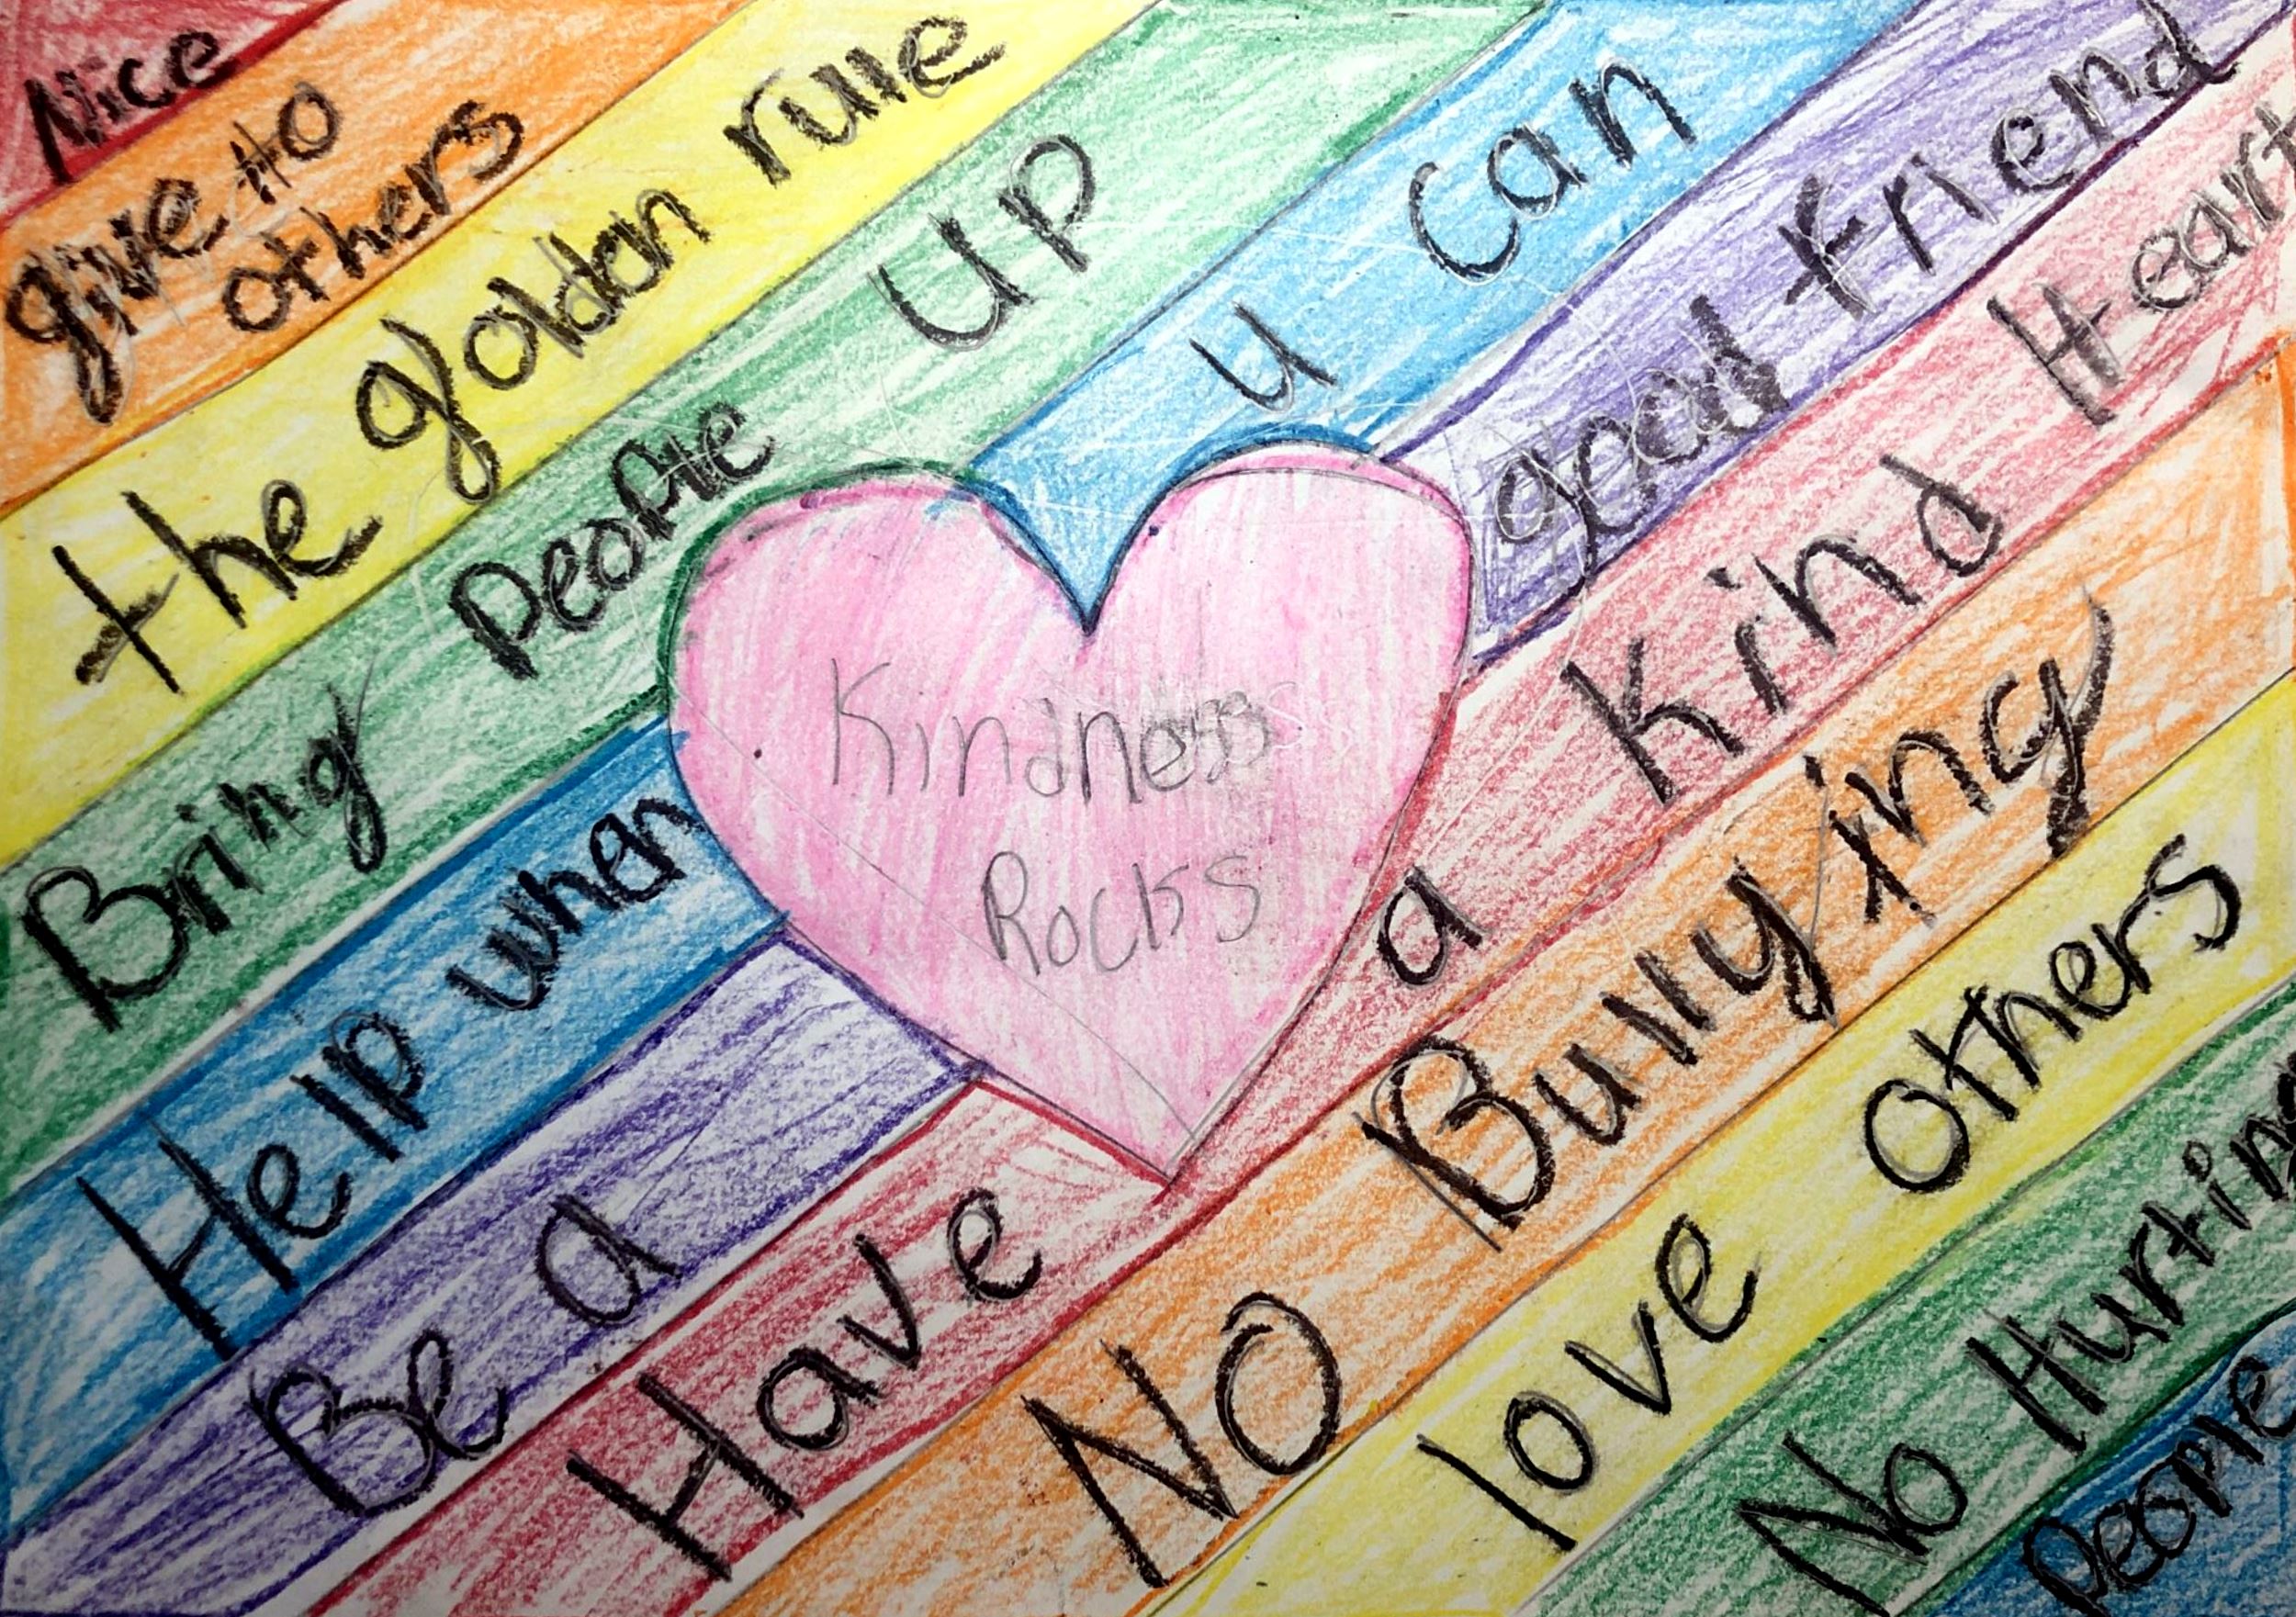 Nice
give to
others
the golden rule
Bring PeoPle UP
Help when u can
Be a good friend
Have a Kind Heart
NO Bullying
love Others
No Hurting
PeoPle
Kindness
Rocks